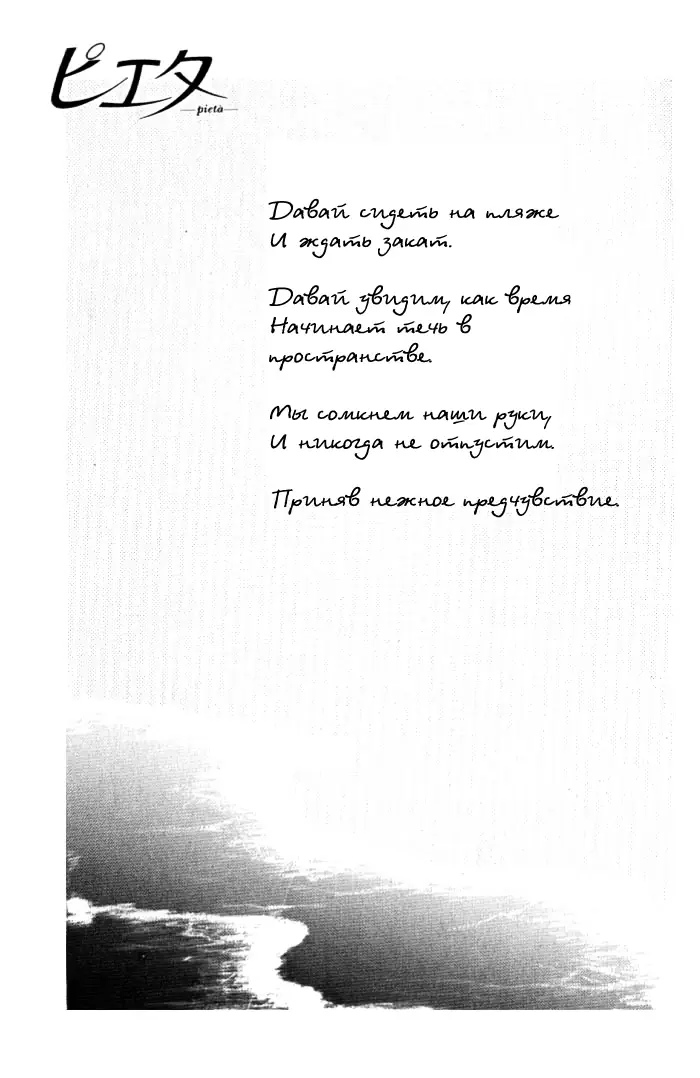 ピエタ
—pietà—
Давай сидеть на пляже
И ждать закат.
Давай увидим, как время
Начинает течь в
пространстве.
Мы сомкнем наши руки,
И никогда не отпустим.
Приняв нежное предчувствие.